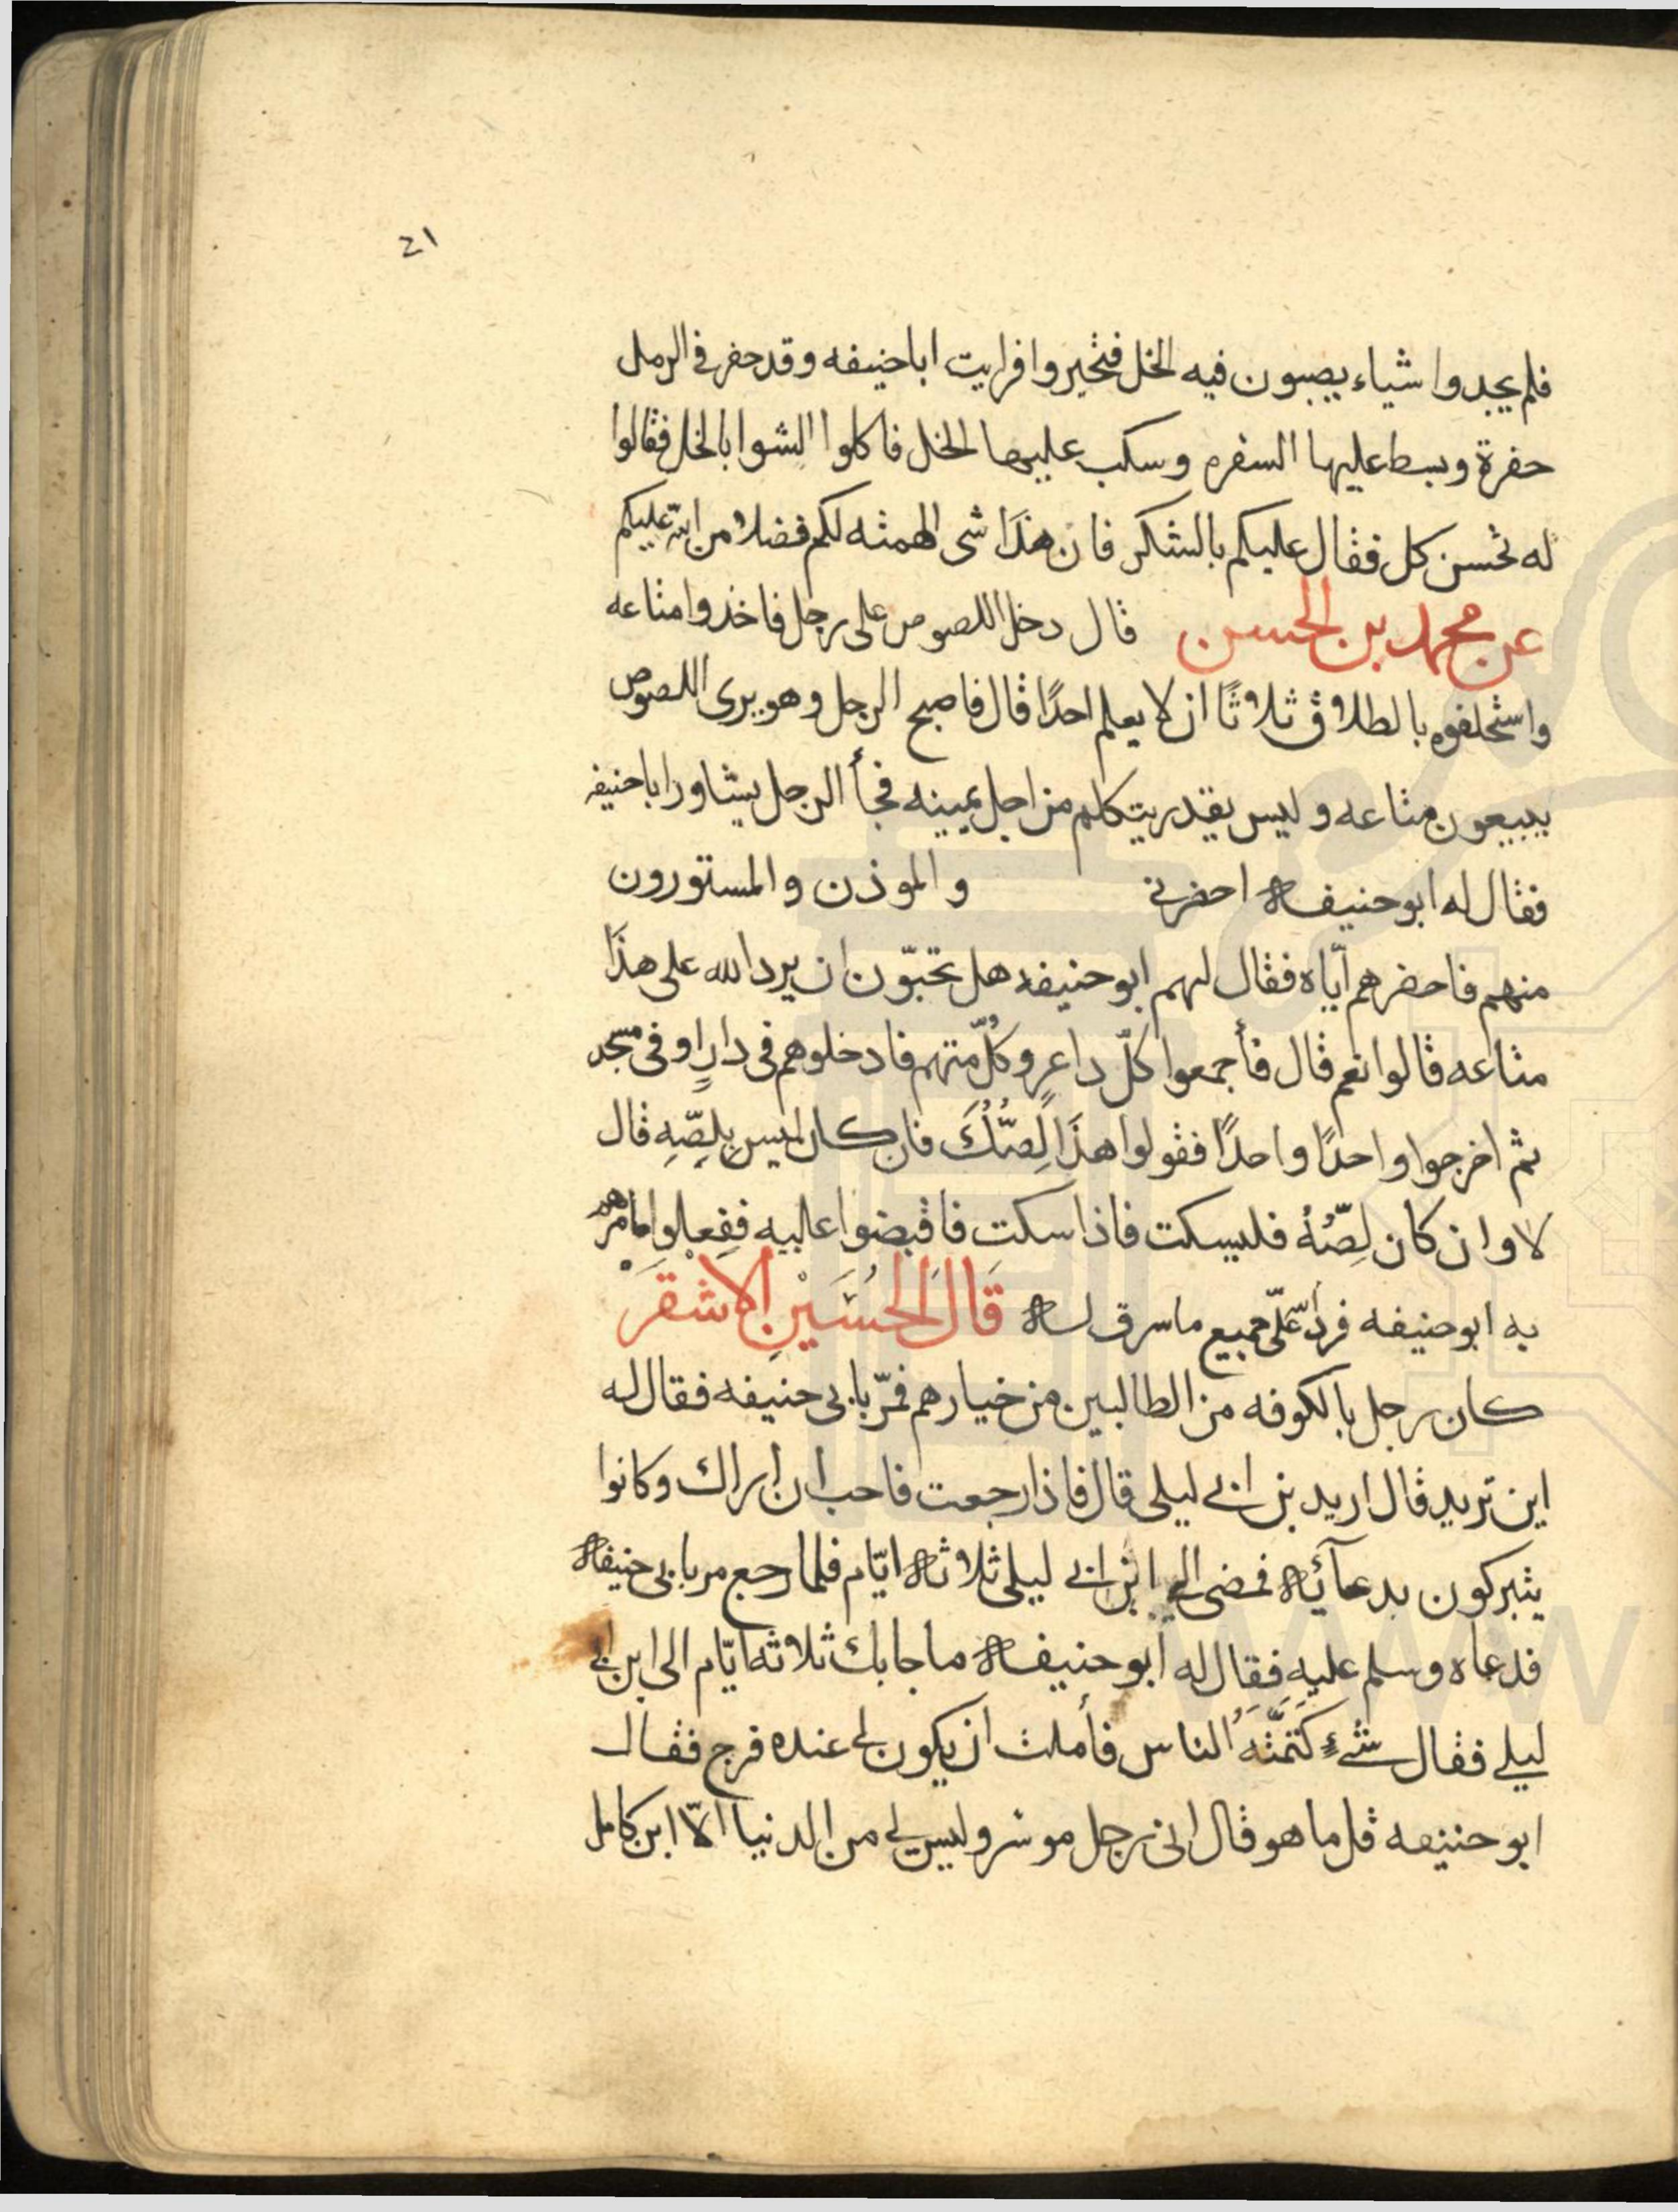 21
فلم يجدوا شياء يصبون فيه الخل فتحيروا فرايت ابا حنيفه وقد حفر في الرمل
حفرة وبسط عليها السفره وسكب عليها الخل فاكلوا الشوا بالخل فقالوا
له تحسن كل فقال عليكم بالشكر فان هذا شى الهمته لكم فضلا من الله عليكم
عن محمد بن الحسن قال دخل اللصوص على رجل فاخذوا متاعه
واستحلفوه بالطلاق ثلاثا ان لا يعلم احدًا قال فاصبح الرجل وهو يرى اللصوص
يبيعون متاعه وليس يقدر يتكلم من اجل يمينه فجأ الرجل يشاور ابا حنيفه
فقال له ابو حنيفة احضرني والموذن والمستورون
منهم فاحضرهم ايّاه فقال لهم ابو حنيفه هل تحبّون ان يرد الله على هذا
متاعه قالوا نعم قال فأجمعوا كلّ داعرٍ وكُلّ متهم فادخلوهم في دارٍ او في مسجد
ثم اخرجوا واحدًا واحدًا فقولوا هذا لِصُّكَ فان كان ليس بِلِصّهِ قال
لا وان كان لِصُّهُ فليسكت فاذا سكت فاقبضوا عليه ففعلوا ما امرهم
به ابو حنيفه فردّ الله علىّ جميع ما سرق له قَالَ الحُسَيْنِ الاشقر
كان رجل بالكوفه من الطالبين من خيارهم فمرّ بابي حنيفه فقال له
اين تريد قال اريد بن ابي ليلى قال فاذا رجعت فاحب ان اراك وكانوا
يتبركون بدعآئه فمضى الى ابن ابي ليلى ثلاثة ايّام فلما رجع مر بابي حنيفة
فدعاه وسلم عليه فقال له ابو حنيفة ما جا بك ثلاثة ايّام الى ابن ابي
ليلى فقال شىءٍ كَتَمْتُهُ الناس فأملت ان يكون لي عنده فرج فقال
ابو حنيفه قل ما هو قال انى رجل موسر وليس لي من الدنيا الّا ابن كامل